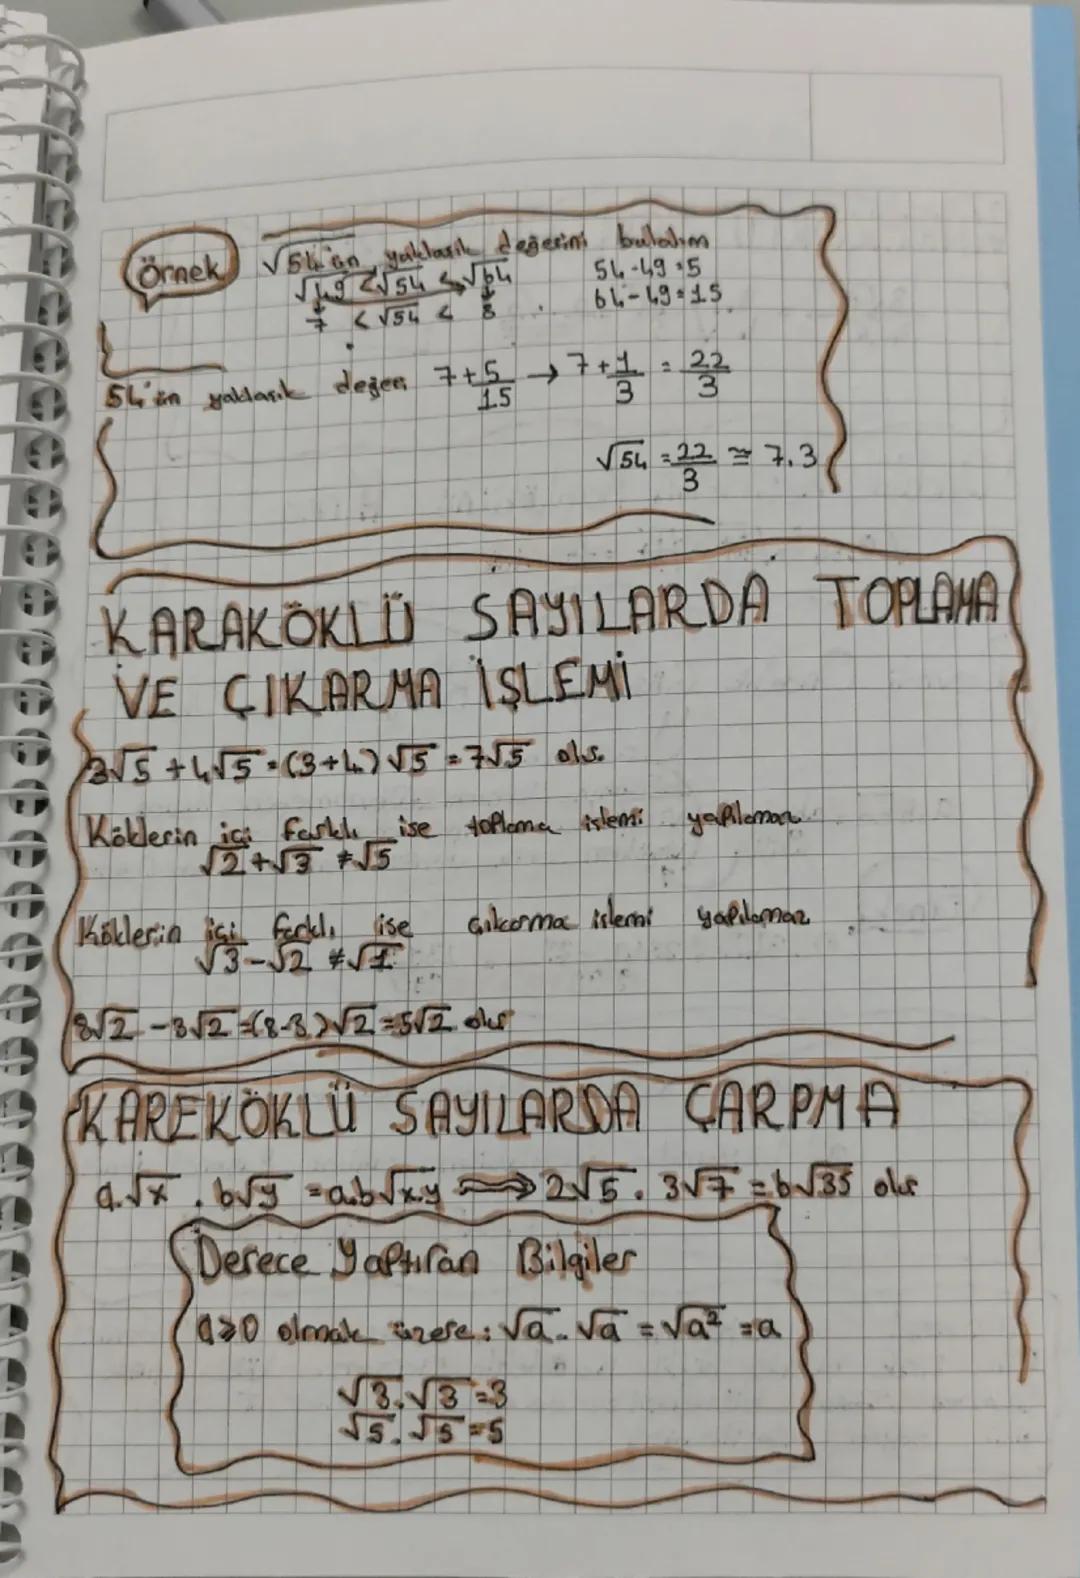 Örnek √54'ün yaklaşık değerini bulalım
√49 < √54 < √64 54-49=5
7 < √54 < 8 64-49=15
54'ün yaklaşık değeri 7+5/15 → 7+1/3 = 22/3
√54 = 22/3 ≅ 7.3
KARAKÖKLÜ SAYILARDA TOPLAMA
VE ÇIKARMA İŞLEMİ
3√5 + 4√5 = (3+4)√5 = 7√5 olr.
Köklerin içi farklı ise toplama işlemi yapılamaz
√2 + √3 ≠ √5
Köklerin içi farklı ise çıkarma işlemi yapılamaz
√3 - √2 ≠ √1
8√2 - 3√2 = (8-3)√2 = 5√2 olur
KAREKÖKLÜ SAYILARDA ÇARPMA
a.√x . b√y = a.b√x.y ⟹ 2√5 . 3√7 = 6√35 olur
Derece Yaptıran Bilgiler
a≥0 olmak üzere: √a . √a = √a² = a
√3 . √3 = 3
√5 . √5 = 5